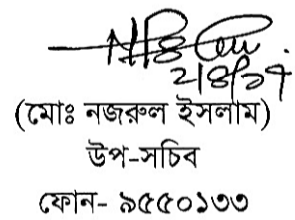 ২/৪/০৭
(মোঃ নজরুল ইসলাম)
উপ-সচিব
ফোন- ৯৫৫০১৩৩